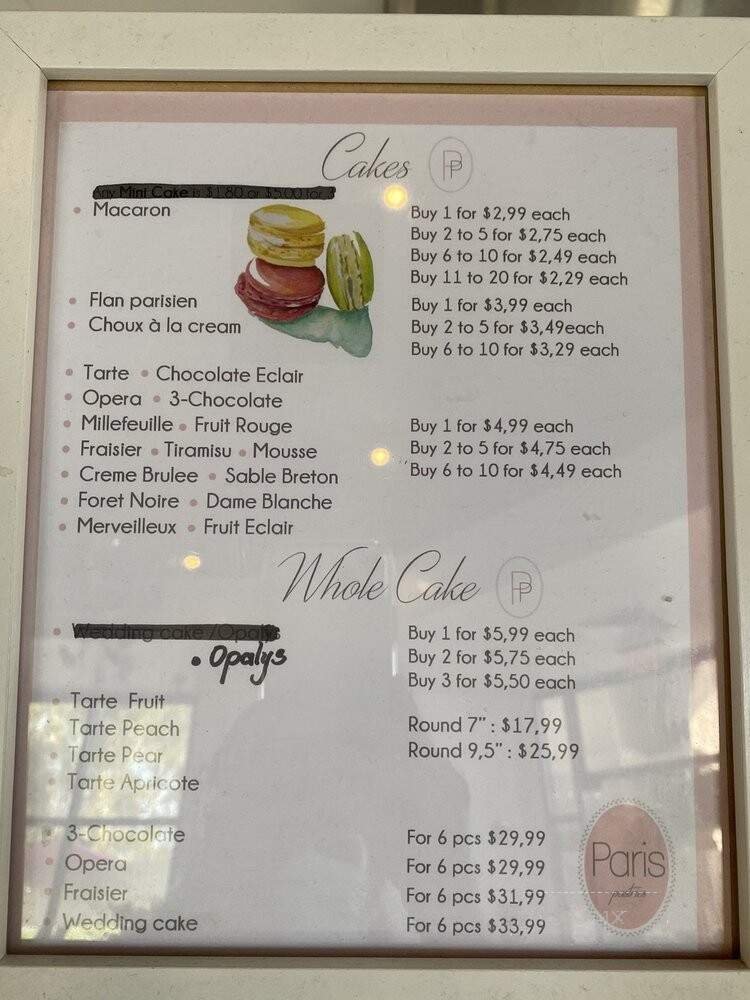 Cakes PP
Any Mini Cake is $1.80 or $5.00 for 3
• Macaron
Buy 1 for $2,99 each
Buy 2 to 5 for $2,75 each
Buy 6 to 10 for $2,49 each
Buy 11 to 20 for $2,29 each
• Flan parisien
• Choux à la cream
Buy 1 for $3,99 each
Buy 2 to 5 for $3,49each
Buy 6 to 10 for $3,29 each
• Tarte • Chocolate Eclair
• Opera • 3-Chocolate
• Millefeuille • Fruit Rouge
• Fraisier • Tiramisu • Mousse
• Creme Brulee • Sable Breton
• Foret Noire • Dame Blanche
• Merveilleux • Fruit Eclair
Buy 1 for $4,99 each
Buy 2 to 5 for $4,75 each
Buy 6 to 10 for $4,49 each
Whole Cake PP
• Wedding cake /Opalys
• Opalys
Buy 1 for $5,99 each
Buy 2 for $5,75 each
Buy 3 for $5,50 each
• Tarte Fruit
• Tarte Peach
• Tarte Pear
• Tarte Apricote
Round 7" : $17,99
Round 9,5" : $25,99
• 3-Chocolate For 6 pcs $29,99
• Opera For 6 pcs $29,99
• Fraisier For 6 pcs $31,99
• Wedding cake For 6 pcs $33,99
Paris